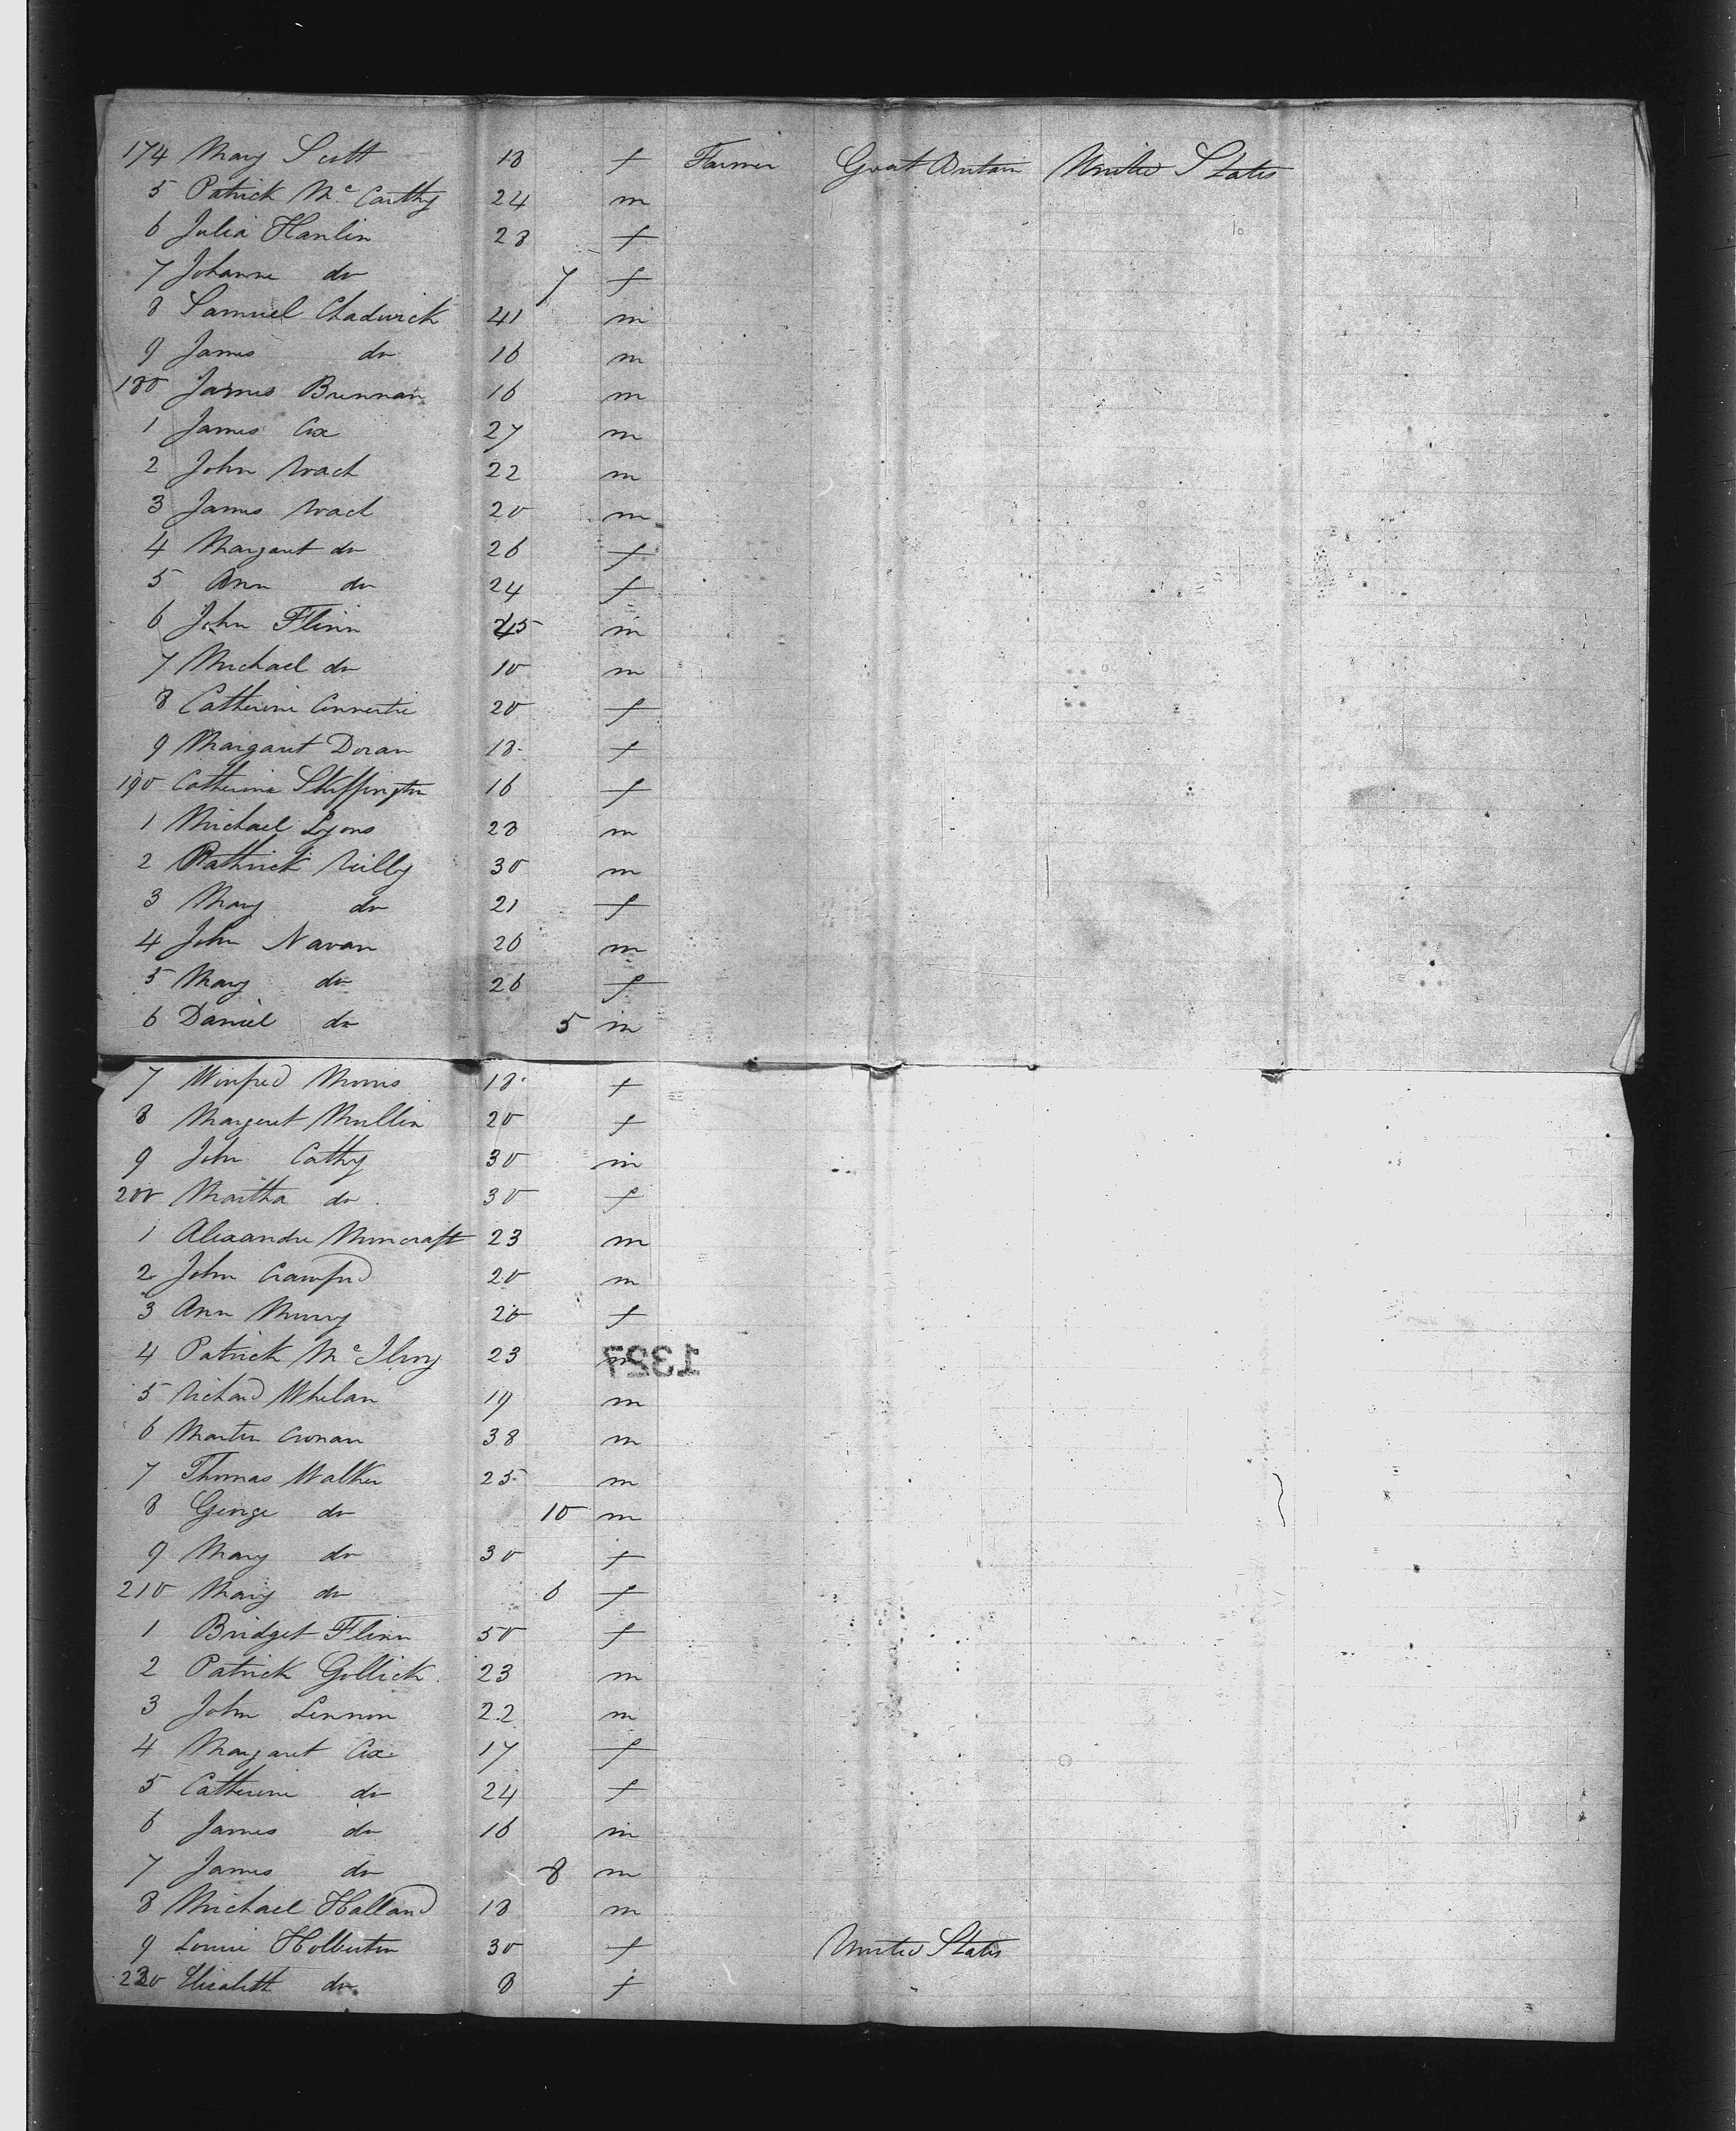 174 Mary Scott 18 f Farmer Great Britain United States
5 Patrick Mc Carthy 24 m
6 Julia Hanlin 28 f
7 Johanne do 7 f
8 Samuel Chadwick 41 m
9 James do 16 m
180 James Brennan 16 m
1 James Cox 27 m
2 John Ward 22 m
3 James Ward 20 m
4 Margaret do 26 f
5 Ann do 24 f
6 John Flinn 45 m
7 Michael do 10 m
8 Catherine 20 f
9 Margaret Doran 18 f
190 Catherine Skiffington 16 f
1 Michael Lyons 28 m
2 Pathrick Reilly 30 m
3 Mary do 21 f
4 John Navan 26 m
5 Mary do 26 f
6 Daniel do 5 m
7 Winfred Morris 18 f
8 Margeret Mullin 20 f
9 John Cathy 30 m
200 Martha do 30 f
1 Alexandre Moncraft 23 m
2 John Crawford 20 m
3 Ann Murry 20 f
4 Patrick Mc Ilroy 23 m
1327
5 Richard Whelan 19 m
6 Martin Cronan 38 m
7 Thomas Walker 25 m
8 George do 10 m
9 Mary do 30 f
210 Mary do 6 f
1 Bridget Flinn 50 f
2 Patrick Gollick 23 m
3 John Lennon 22 m
4 Margaret Cox 17 f
5 Catherine do 24 f
6 James do 16 m
7 James do 8 m
8 Michael Holland 18 m
9 Louise Holberton 30 f United States
220 Elisabeth do 8 f